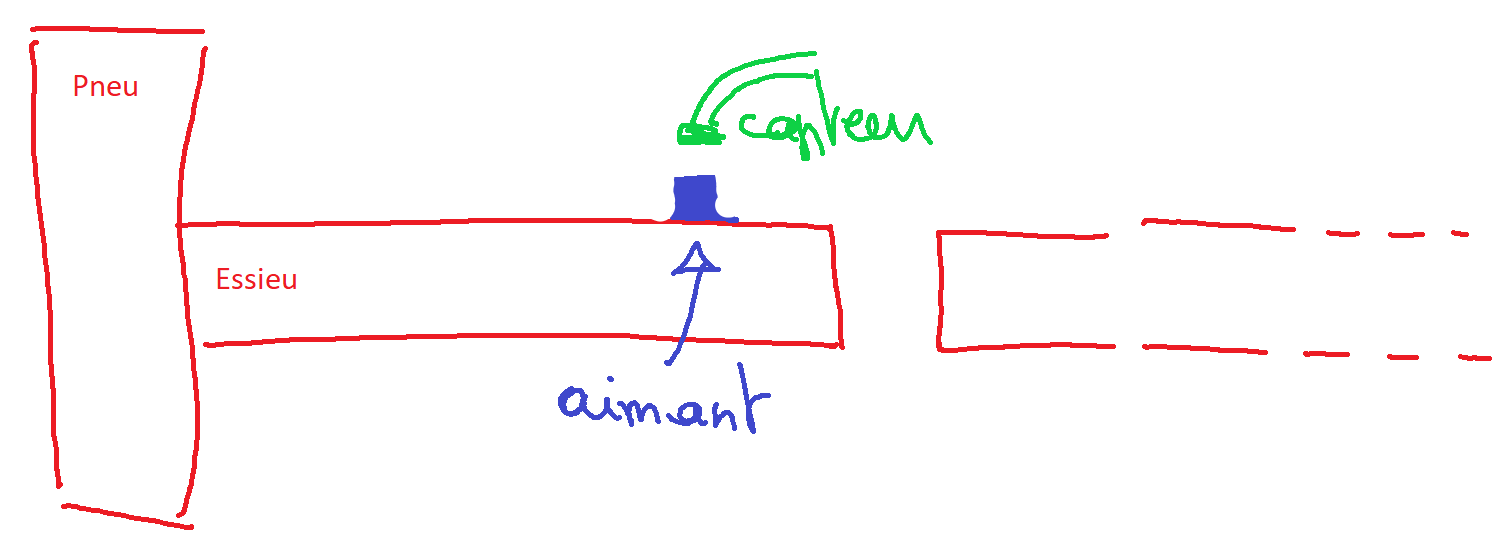 Pneu
capteur
Essieu
aimant